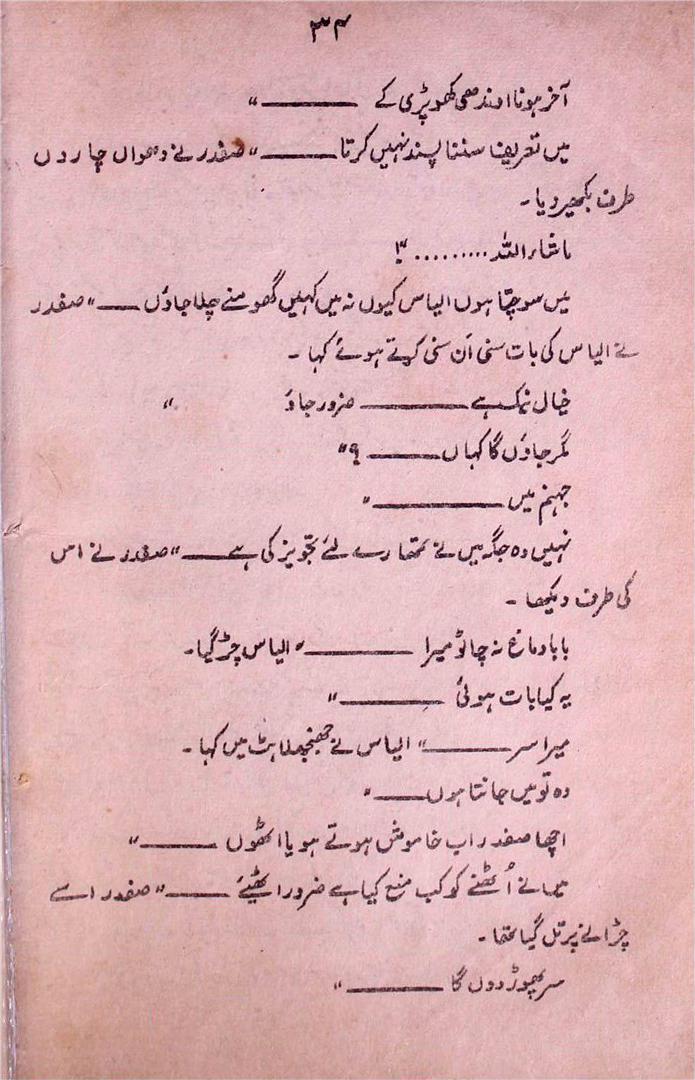 ۳۴
آخر ہونا اوندھی کھوپڑی کے ——— "
میں تعریف سننا پسند نہیں کرتا ——— " صفدر نے دھواں چاروں
طرف بکھیر دیا۔
ماشاء اللہ ......... !"
میں سوچتا ہوں الیاس کیوں نہ میں کہیں گھومنے چلا جاؤں ——— " صفدر
نے الیاس کی بات سنی اَن سنی کرتے ہوئے کہا۔
خیال نیک ہے ——— ضرور جاؤ "
مگر جاؤں گا کہاں ——— ؟"
جہنم میں ——— "
نہیں وہ جگہ میں نے تمھارے لئے تجویز کی ہے ——— " صفدر نے اس
کی طرف دیکھا۔
بابا دماغ نہ چاٹو میرا ——— " الیاس چڑ گیا۔
یہ کیا بات ہوئی ——— "
میرا سر ——— " الیاس نے جھنجھلاہٹ میں کہا۔
وہ تو میں جانتا ہوں ——— "
اچھا صفدر اب خاموش ہوتے ہو یا اٹھوں ——— "
میں نے اُٹھنے کو کب منع کیا ہے ضرور اٹھیئے ——— " صفدر اسے
چڑانے پر تل گیا تھا۔
سر پھوڑ دوں گا ——— "